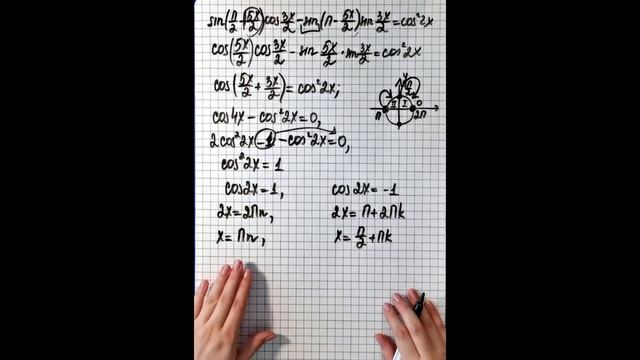 sin(π/2 - 5x/2)cos 3x/2 - sin(π - 5x/2)sin 3x/2 = cos²2x
cos(5x/2)cos 3x/2 - sin 5x/2 · sin 3x/2 = cos²2x
cos(5x/2 + 3x/2) = cos²2x;
cos4x - cos²2x = 0,
2cos²2x - 1 - cos²2x = 0,
cos²2x = 1
cos2x = 1, cos2x = -1
2x = 2πn, 2x = π + 2πk
x = πn, x = π/2 + πk
II I 0
π 2π